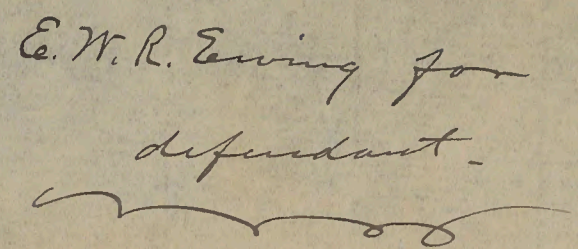 E. W. R. Ewing for
defendant.